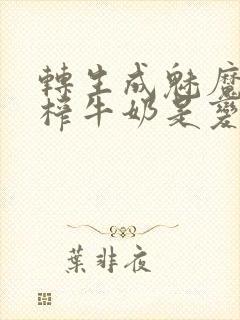 轉生成魅魔
榨牛奶是變
葉非夜